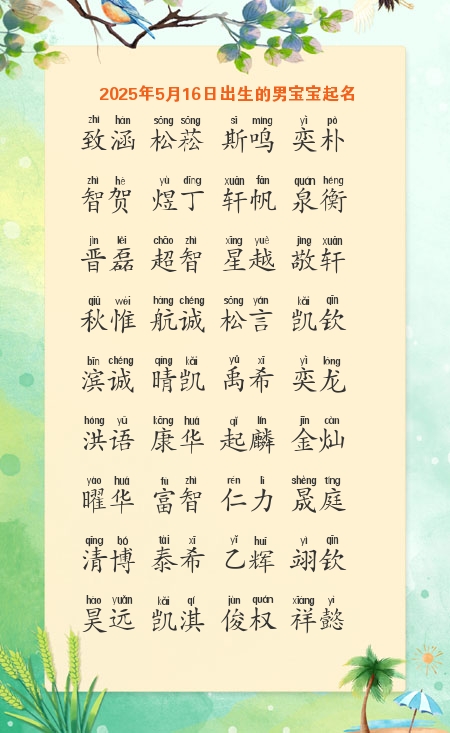 2025年5月16日出生的男宝宝起名
zhì hán sōng sōng sī míng yì pò
致涵 松菘 斯鸣 奕朴
zhì hè yù dīng xuān fān quán héng
智贺 煜丁 轩帆 泉衡
jìn lěi chāo zhì xīng yuè jìng xuān
晋磊 超智 星越 敬轩
qiū wéi háng chéng sōng yán kǎi qīn
秋惟 航诚 松言 凯钦
bīn chéng qíng kǎi yǔ xī yì lóng
滨诚 晴凯 禹希 奕龙
hóng yǔ kāng huá qǐ lín jīn càn
洪语 康华 起麟 金灿
yào huá fù zhì rén lì shèng tíng
曜华 富智 仁力 晟庭
qīng bó tài xī yǐ huī yì qīn
清博 泰希 乙辉 翊钦
hào yuǎn kǎi qí jùn quán xiáng yì
昊远 凯淇 俊权 祥懿